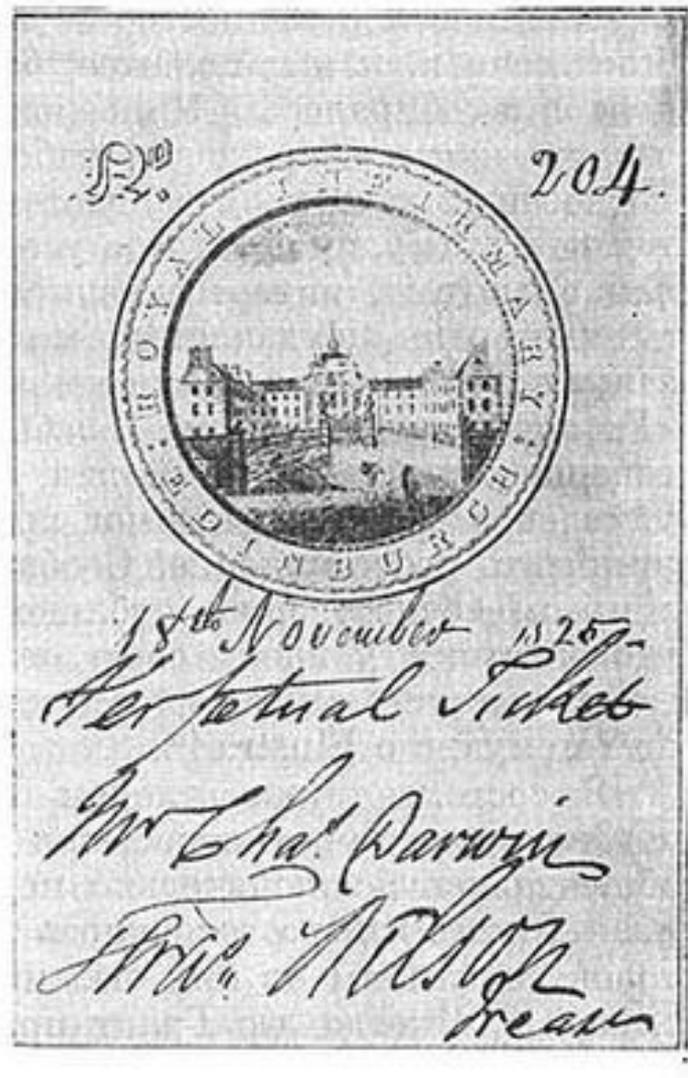 No 204.
ROYAL INFIRMARY
EDINBURGH
18th November 1825
Perpetual Ticket
Mr Chas Darwin
Wilson
Treasr